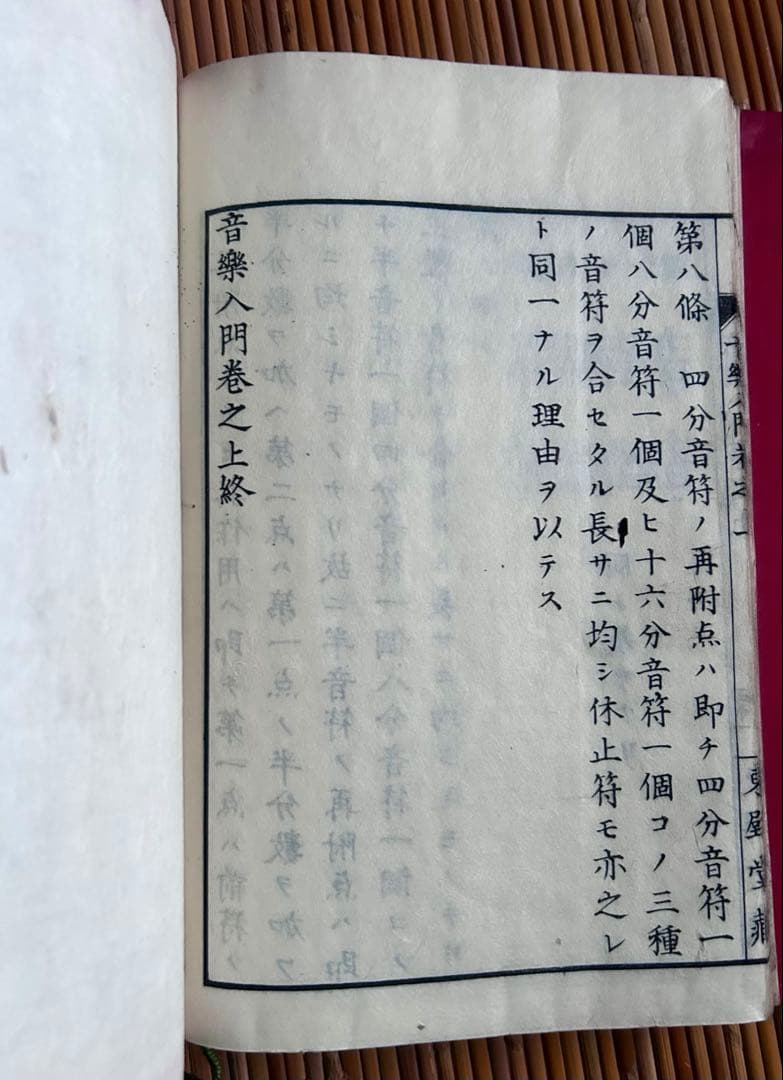 第八條　四分音符ノ再附点ハ即チ四分音符一
個八分音符一個及ヒ十六分音符一個コノ三種
ノ音符ヲ合セタル長サニ均シ休止符モ亦之レ
ト同一ナル理由ヲ以テス
音樂入門卷之上終